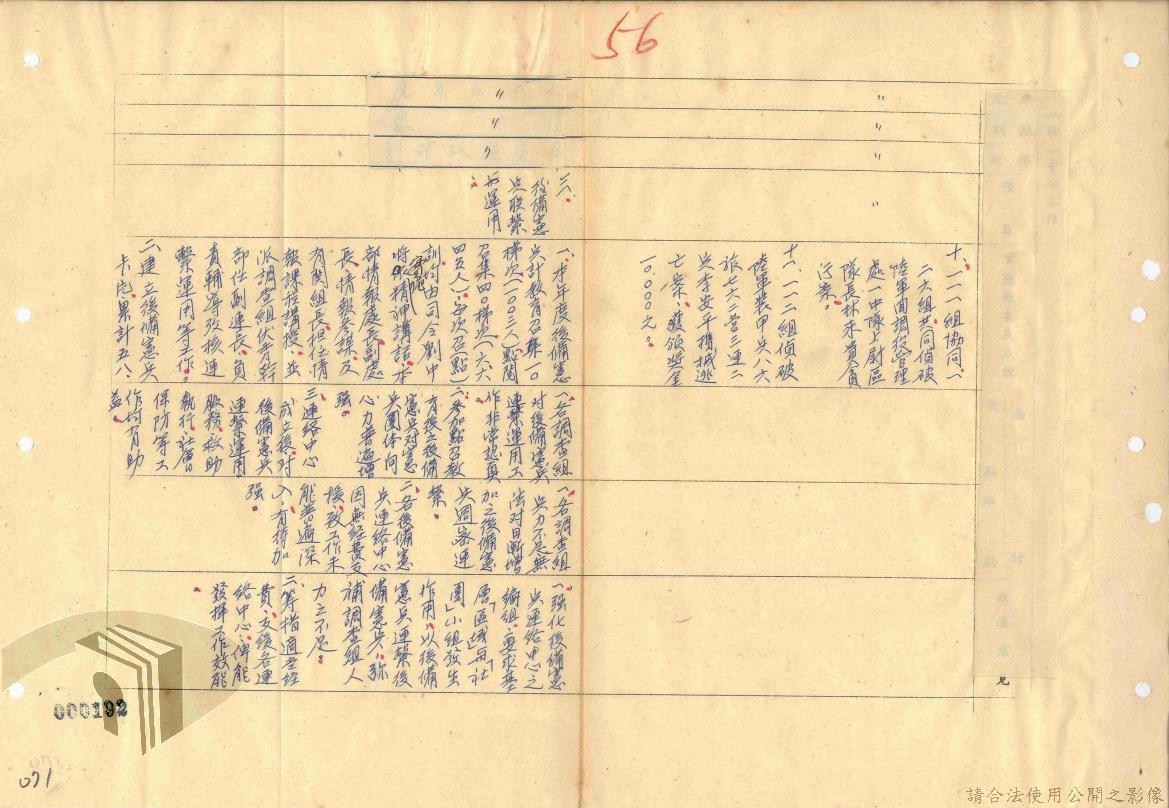 56
〃
〃
〃
〃
十、一一一組協同一
二六組共同偵破
陸軍面調技管理
處一中隊上尉區
隊長林來貴貪
污案。
十一、一一二組偵破
陸軍裝甲兵八六
旅七六一營三連二
兵李安平機械逃
亡案，獲頒獎金
一0000元。
〃
〃
〃
三、
後備憲
兵聯繫
與運用
：
一、本年度後備憲
兵計教育召集一0
梯次（一00三人）點閱
召集四0梯次（六六
四五人），每次召（點）
訓均由司令劉中
將做精神講話，本
部情報處長、副處
長、情報參謀、及
有関組長，担任情
報課程講授，並
派調查組伏責幹
部任副連長，負
責輔導考核連
繫運用等工作。
二、建立後備憲兵
卡片，累計五八
一、各調查組
対後備憲兵
連繫運用工
作非常認真
二、參加點召教
育後之後備
憲兵对憲
兵團体向
心力普遍增
强。
三、連絡中心
成立後对
後備憲兵
連繫運用、
服務、救助
執行社會
保防等工
作均有助
益。
一、各調查組
兵力不足無
法对日漸增
加之後備憲
兵週密連
繫。
二、各後備憲
兵連絡中心
因無経費支
援，致工作未
能普遍深
入，有待加
强。
一、强化後備憲
兵連絡中心之
編組，要求基
層「區域」与「社
團」小組發生
作用，以後備
憲兵連繫後
備憲兵，弥
補調查組人
力之不足。
二、筹措適当経
費，支援各連
絡中心，俾能
發揮工作效能
。
見
000192
071
請合法使用公開之影像